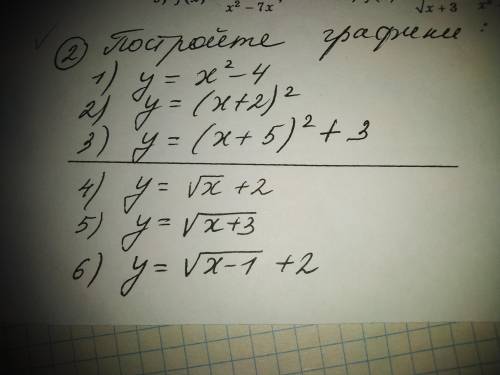 x² − 7x
√x + 3
② Постройте графики :
1) y = x² − 4
2) y = (x+2)²
3) y = (x + 5)² + 3
4) y = √x + 2
5) y = √(x+3)
6) y = √(x−1) + 2